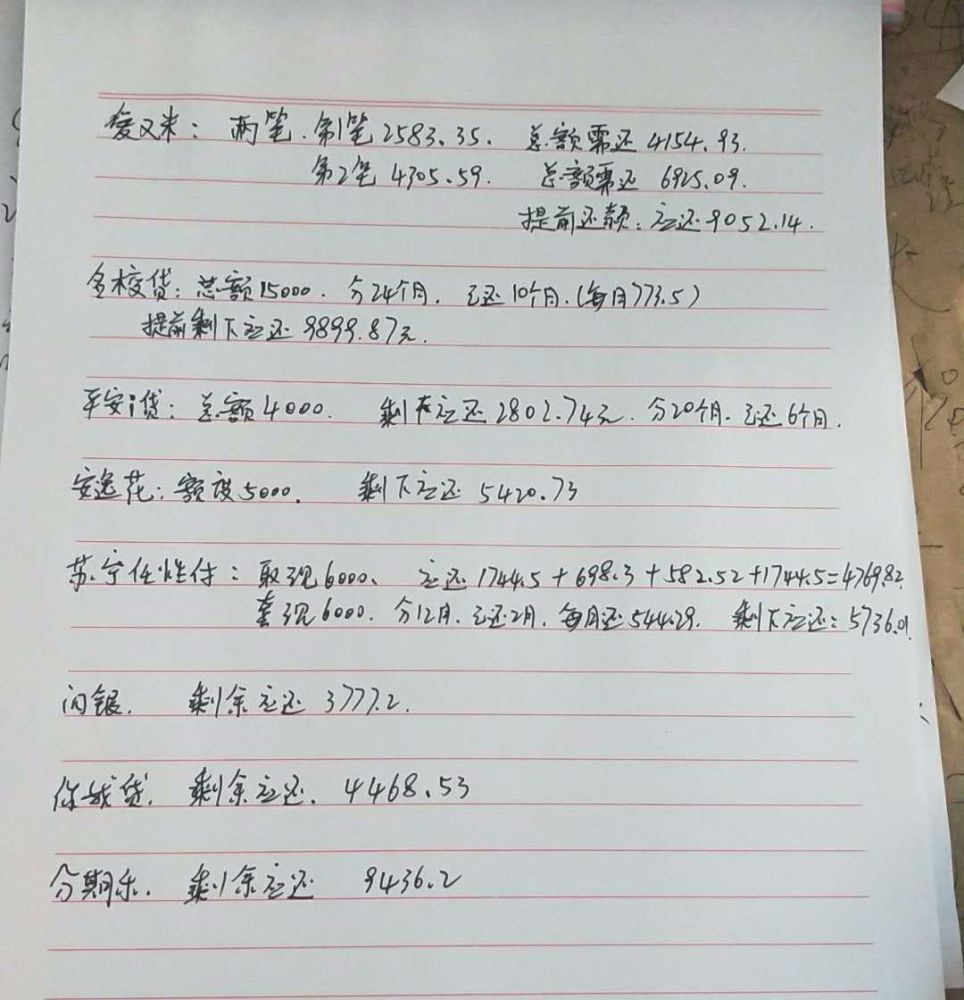 爱又米：两笔.第1笔2583.35.总额需还4154.93.
第2笔4305.59.总额需还6925.09.
提前还款：应还9052.14.
名校贷：总额15000.分24个月.已还10个月.(每月773.5)
提前剩下应还9899.87元.
平安i贷：总额4000.剩下应还2802.74元.分20个月.已还6个月.
安逸花：额度5000.剩下应还5420.73
苏宁任性付：取现6000、应还1744.5+698.3+582.52+1744.5=4769.82.
套现6000.分12月.已还2月.每月还544.29.剩下应还：5736.01.
闪银.剩余应还3777.2.
你我贷.剩余应还.4468.53
分期乐.剩余应还9436.2